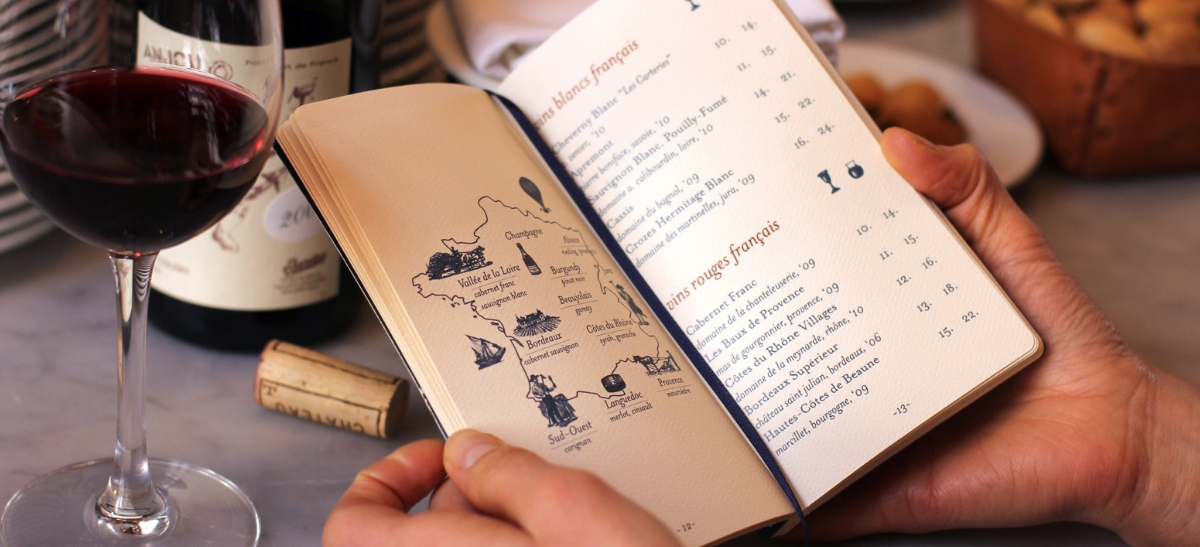 ANJOU
de France
CHATEAU
Champagne
Alsace
Vallée de la Loire
cabernet franc
sauvignon blanc
Burgundy
pinot noir
Beaujolais
gamay
Bordeaux
cabernet sauvignon
Côtes du Rhône
syrah, grenache
Provence
mourvèdre
Languedoc
merlot, cinsault
Sud-Ouest
carignan
-12-
vins blancs français
Cheverny Blanc "Les Carteries" 10. 14.
'10
Apremont 11. 15.
pierre boniface, savoie, '10
Sauvignon Blanc, Pouilly-Fumé 14. 21.
domaine a. cailbourdin, loire, '10
Cassis 15. 22.
domaine du bagnol, '09
Crozes Hermitage Blanc 16. 24.
domaine des martinelles, jura, '09
vins rouges français
Cabernet Franc 10. 14.
domaine de la chanteleuserie, '09
Les Baux de Provence 11. 15.
mas de gourgonnier, provence, '09
Côtes du Rhône Villages 12. 16.
domaine de la meynarde, rhône, '10
Bordeaux Supérieur 13. 18.
château saint julian, bordeaux, '06
Hautes-Côtes de Beaune 15. 22.
marcillet, bourgogne, '09
-13-